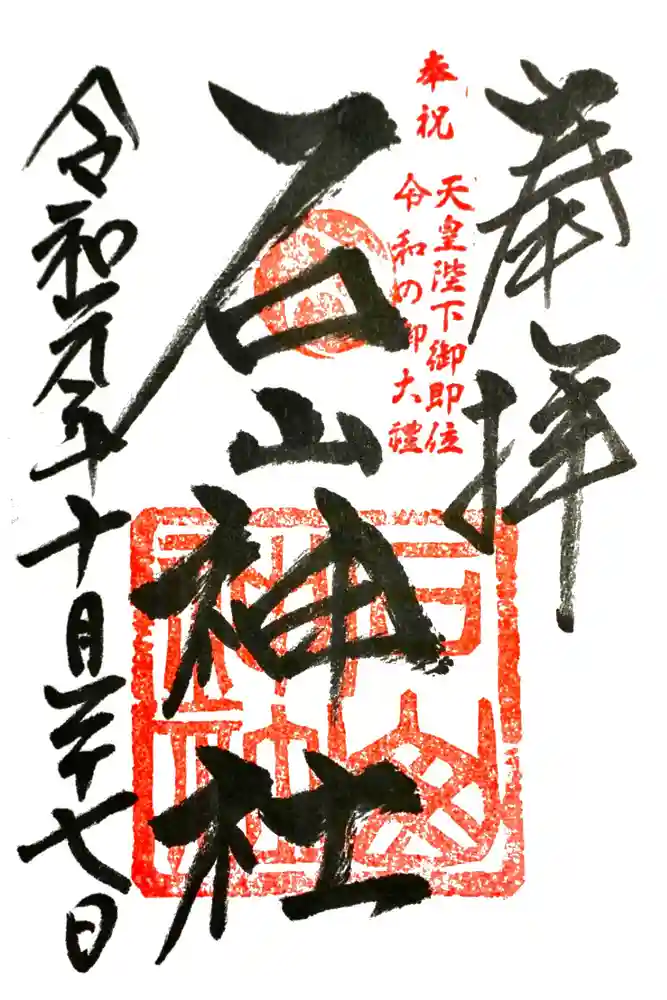 奉拝
奉祝
天皇陛下御即位
令和の御大禮
石山神社
令和元年十月二十七日